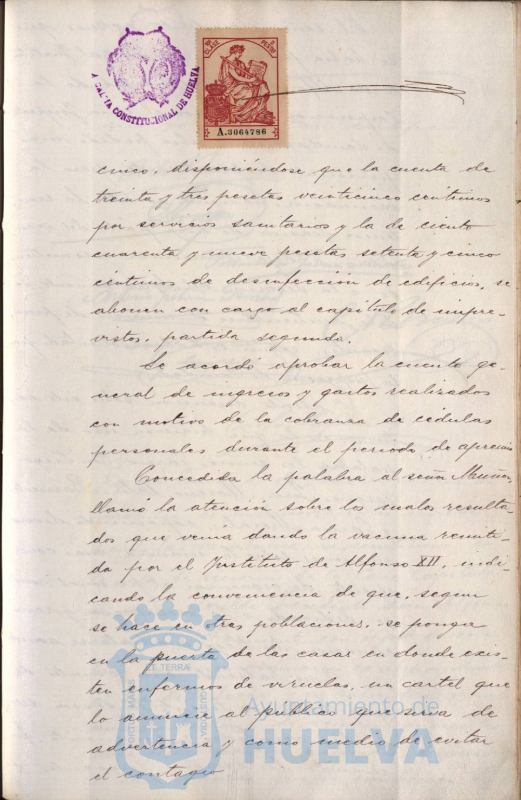 ALCALDIA CONSTITUCIONAL DE HUELVA
CLASE
PESETAS
A.3064786
cinco, disponiéndose que la cuenta de
treinta y tres pesetas veinticinco céntimos
por servicios sanitarios y la de ciento
cuarenta y nueve pesetas setenta y cinco
céntimos de desinfección de edificios, se
abonen con cargo al capítulo de impre-
vistos, partida segunda.
Se acordó aprobar la cuenta ge-
neral de ingresos y gastos realizados
con motivo de la cobranza de cédulas
personales durante el periodo de apremio
Concedida la palabra al señor Muñoz,
llamó la atención sobre los malos resulta-
dos que venía dando la vacuna remiti-
da por el Instituto de Alfonso XII, indi-
cando la conveniencia de que, segun
se hace en otras poblaciones, se ponga
en la puerta de las casas en donde exis-
ten enfermos de viruelas, un cartel que
lo anuncie al público que sirva de
advertencia y como medio de evitar
el contagio
Ayuntamiento de
HUELVA